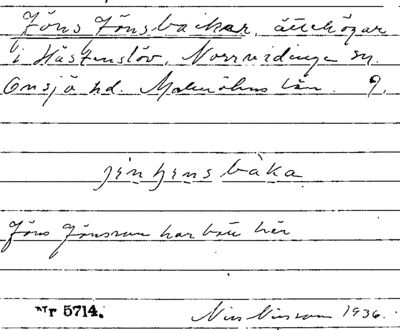 Jöns Jönsbackar, ättehögar
i Hästenslöv, Norrvidinge sn.
Onsjö hd. Malmöhus län. 9.
jėn jens bàka
Jöns Jönsson har bott här
Nr 5714.
Nils Nilsson 1936.